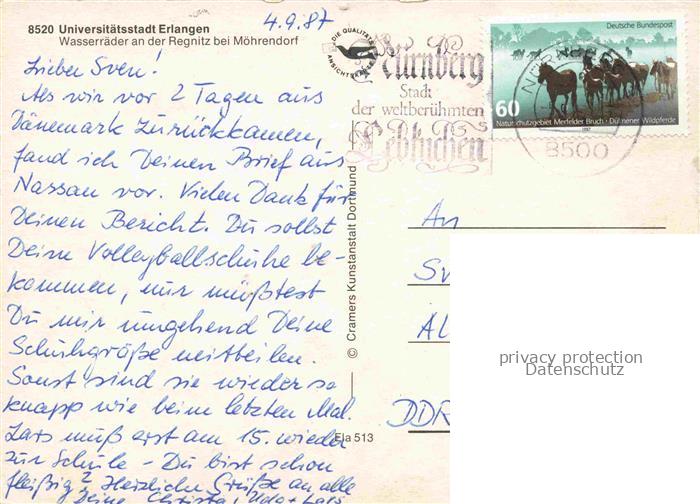 8520 Universitätsstadt Erlangen
Wasserräder an der Regnitz bei Möhrendorf
4.9.87
Lieber Sven!
Als wir vor 2 Tagen aus
Dänemark zurückkamen,
fand ich Deinen Brief aus
Nassau vor. Vielen Dank für
Deinen Bericht. Du sollst
Deine Volleyballschuhe be-
kommen, nur müßtest
Du mir umgehend Deine
Schuhgröße mitteilen.
Sonst sind sie wieder so
knapp wie beim letzten Mal.
Lars muß erst am 15. wieder
zur Schule - Du bist schon
fleißig? Herzliche Grüße an alle
Deine Christa, Udo + Lars
DIE QUALITÄTS
ANSICHTSKARTE
Nürnberg
Stadt
der weltberühmten
Lebkuchen
8500
Deutsche Bundespost
60
Naturschutzgebiet Merfelder Bruch · Dülmener Wildpferde
1987
© Cramers Kunstanstalt Dortmund
Ela 513
An
Sv
Al
DDR
privacy protection
Datenschutz